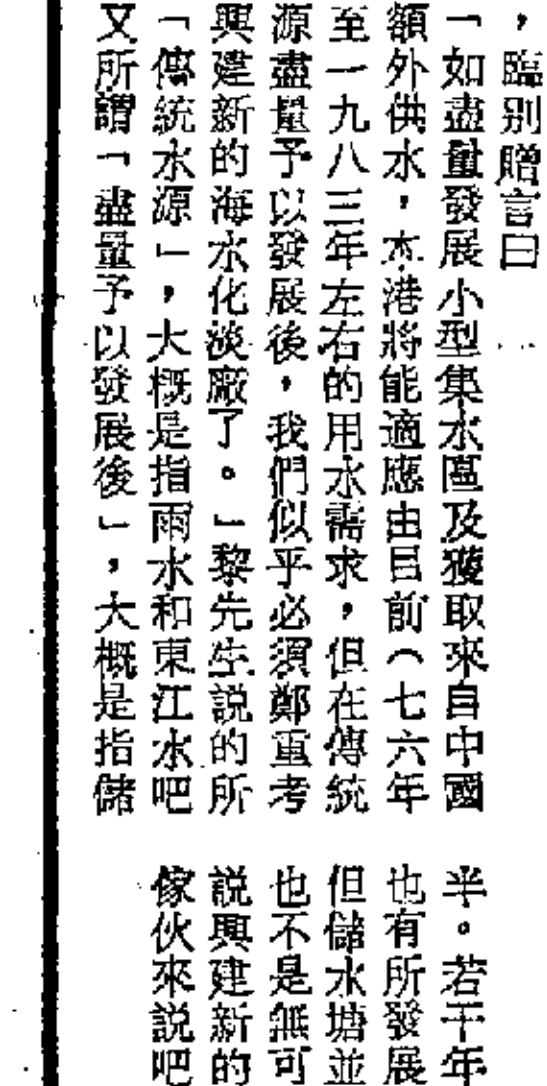 ，臨別贈言曰
「如盡量發展小型集水區及獲取來自中國
額外供水，本港將能適應由目前（七六年
至一九八三年左右的用水需求，但在傳統
源盡量予以發展後，我們似乎必須鄭重考
興建新的海水化淡廠了。」黎先生說的所
「傳統水源」，大概是指雨水和東江水吧
又所謂「盡量予以發展後」，大概是指儲
半。若干年
也有所發展
但儲水塘並
也不是無可
說興建新的
傢伙來說吧